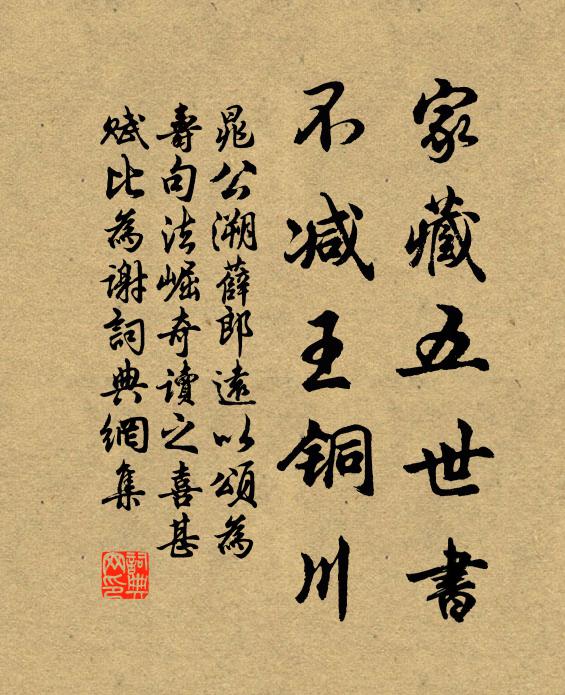 家藏五世書
不減王銅川
晁公溯薛郎遠以頌為
壽句法崛奇讀之喜甚
賦比為謝詞典網集
詞典網印